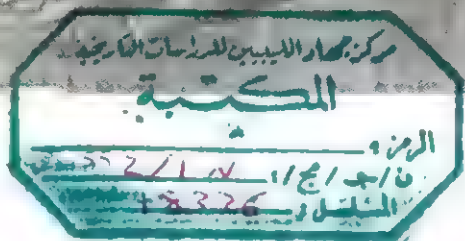 مركز جهاد الليبيين للدراسات التاريخية
المكتبة
الرمز:
ن / جـ / مج / :
المتسلسل: